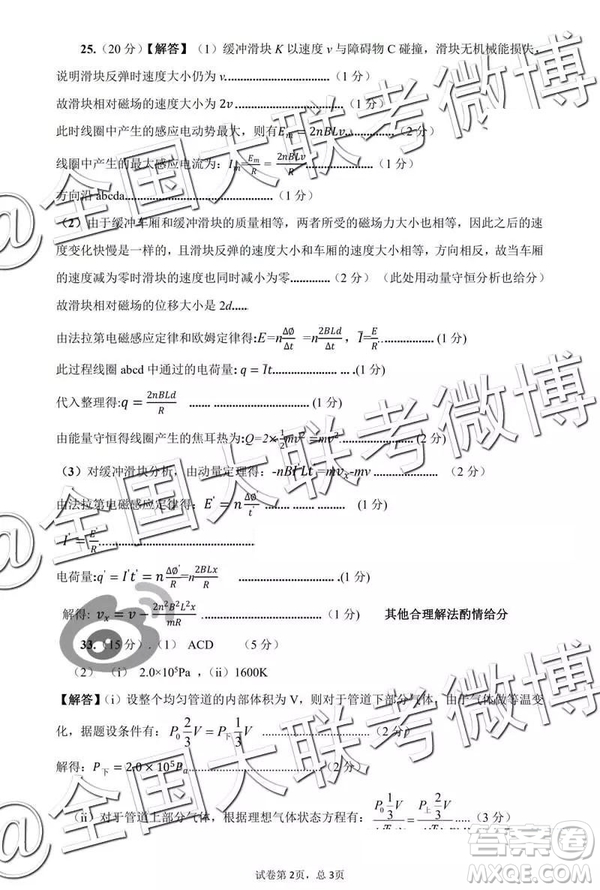 25.（20 分）【解答】（1）缓冲滑块 K 以速度 v 与障碍物 C 碰撞，滑块无机械能损失，
说明滑块反弹时速度大小仍为 v..............................（1 分）
故滑块相对磁场的速度大小为 2v..............................（1 分）
此时线圈中产生的感应电动势最大，则有Em=2nBLv..............（2 分）
线圈中产生的最大感应电流为：Im=Em/R = 2nBLv/R..............（1 分）
方向沿 abcda..............................（1 分）
（2）由于缓冲车厢和缓冲滑块的质量相等，两者所受的磁场力大小相等，因此之后的速
度变化快慢是一样的，且滑块反弹的速度大小和车厢的速度大小相等，方向相反，故当车厢
的速度减为零时滑块的速度也同时减小为零............（2 分）（此处用动量守恒分析也给分）
故滑块相对磁场的位移大小是 2d.....
由法拉第电磁感应定律和欧姆定律得:E=nΔ∅/Δt =n2BLd/Δt，I̅=E/R................（1 分）
此过程线圈 abcd 中通过的电荷量: q = I̅t..................... ... ..（1 分）
代入整理得:q = 2nBLd/R ...... ........................（1 分）
由能量守恒得线圈产生的焦耳热为:Q=2×1/2mv²=mv².................. （2 分）
（3）对缓冲滑块分析，由动量定理得：-nBI'Lt'=mvx-mv ............... （2 分）
由法拉第电磁感应定律得：E' = nΔ∅'/t' ........ ...... .........（1 分）
I' = E'/R ............ ............ .........（1 分）
电荷量:q' = I't' = nΔ∅'/R = n2BLx/R .............（1 分）
解得: vx = v − 2n²B²L²x/mR ..............................（1 分） 其他合理解法酌情给分
33.（15 分）.（1） ACD （5 分）
（2）（i） 2.0×10⁵Pa ，（ii）1600K
【解答】（i）设整个均匀管道的内部体积为 V，则对于管道下部分气体，由于气体做等温变
化，据题设条件有：P0 2/3 V = P下 1/3 V ..............................（2 分）
解得：P下=2.0×10⁵Pa ..............................（2 分）
（ii）对于管道上部分气体，根据理想气体状态方程有：P0 1/3 V = P上 2/3 V .....（3 分）
试卷第 2页，总 3页
@全国大联考微博
@全国大联考微博
@全国大联考微博
答案圈